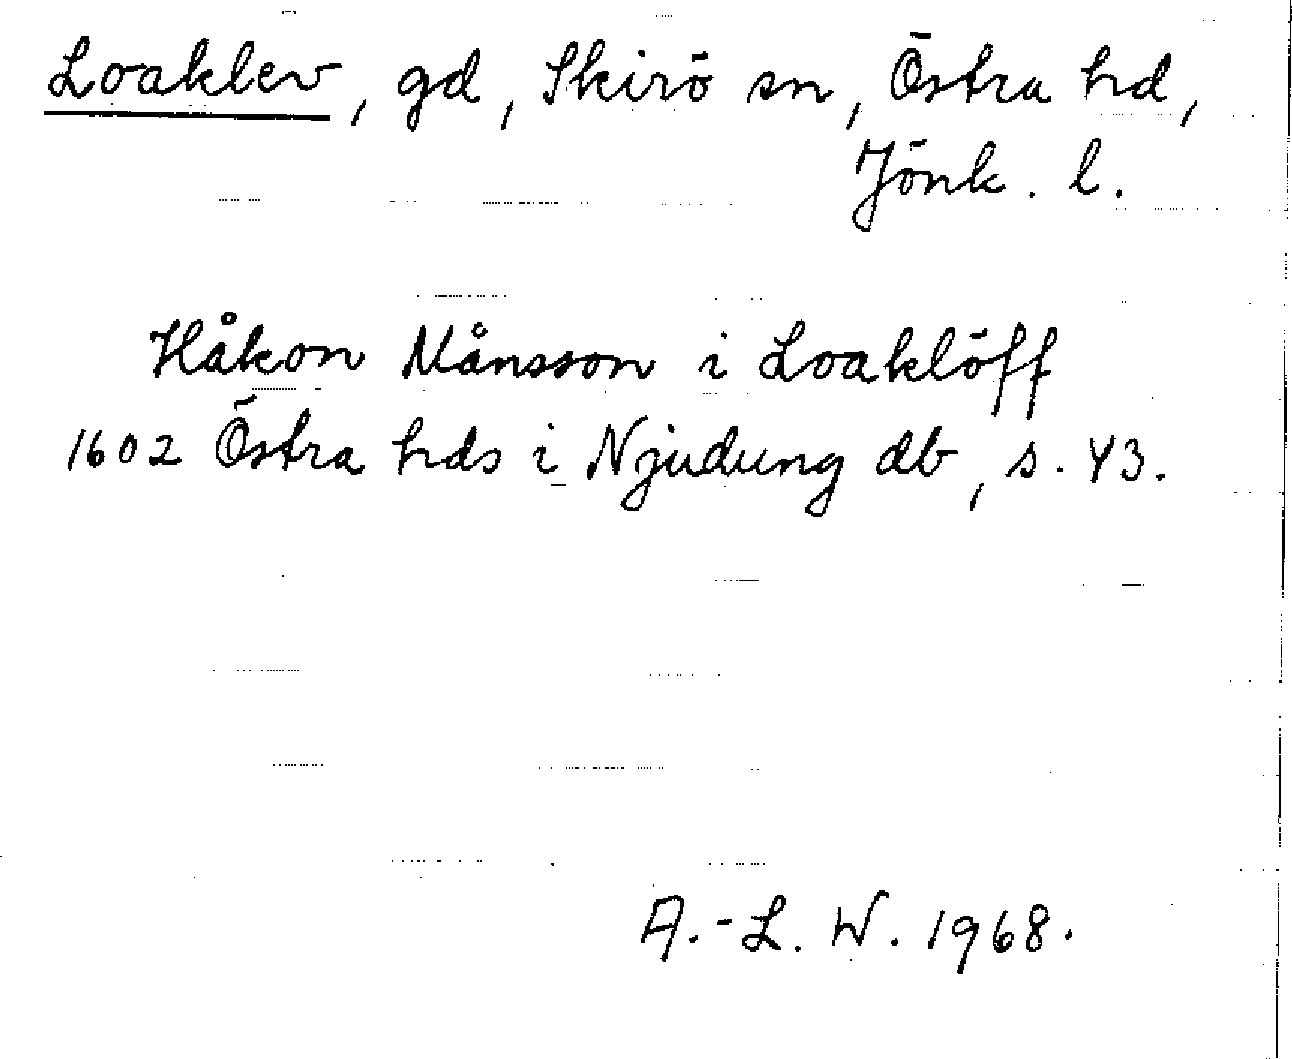 Loaklev, gd, Skirö sn, Östra hd,
Jönk. l.
Håkon Månsson i Loaklöff
1602 Östra hds i Njudung db, s. 43.
A.-L. W. 1968.